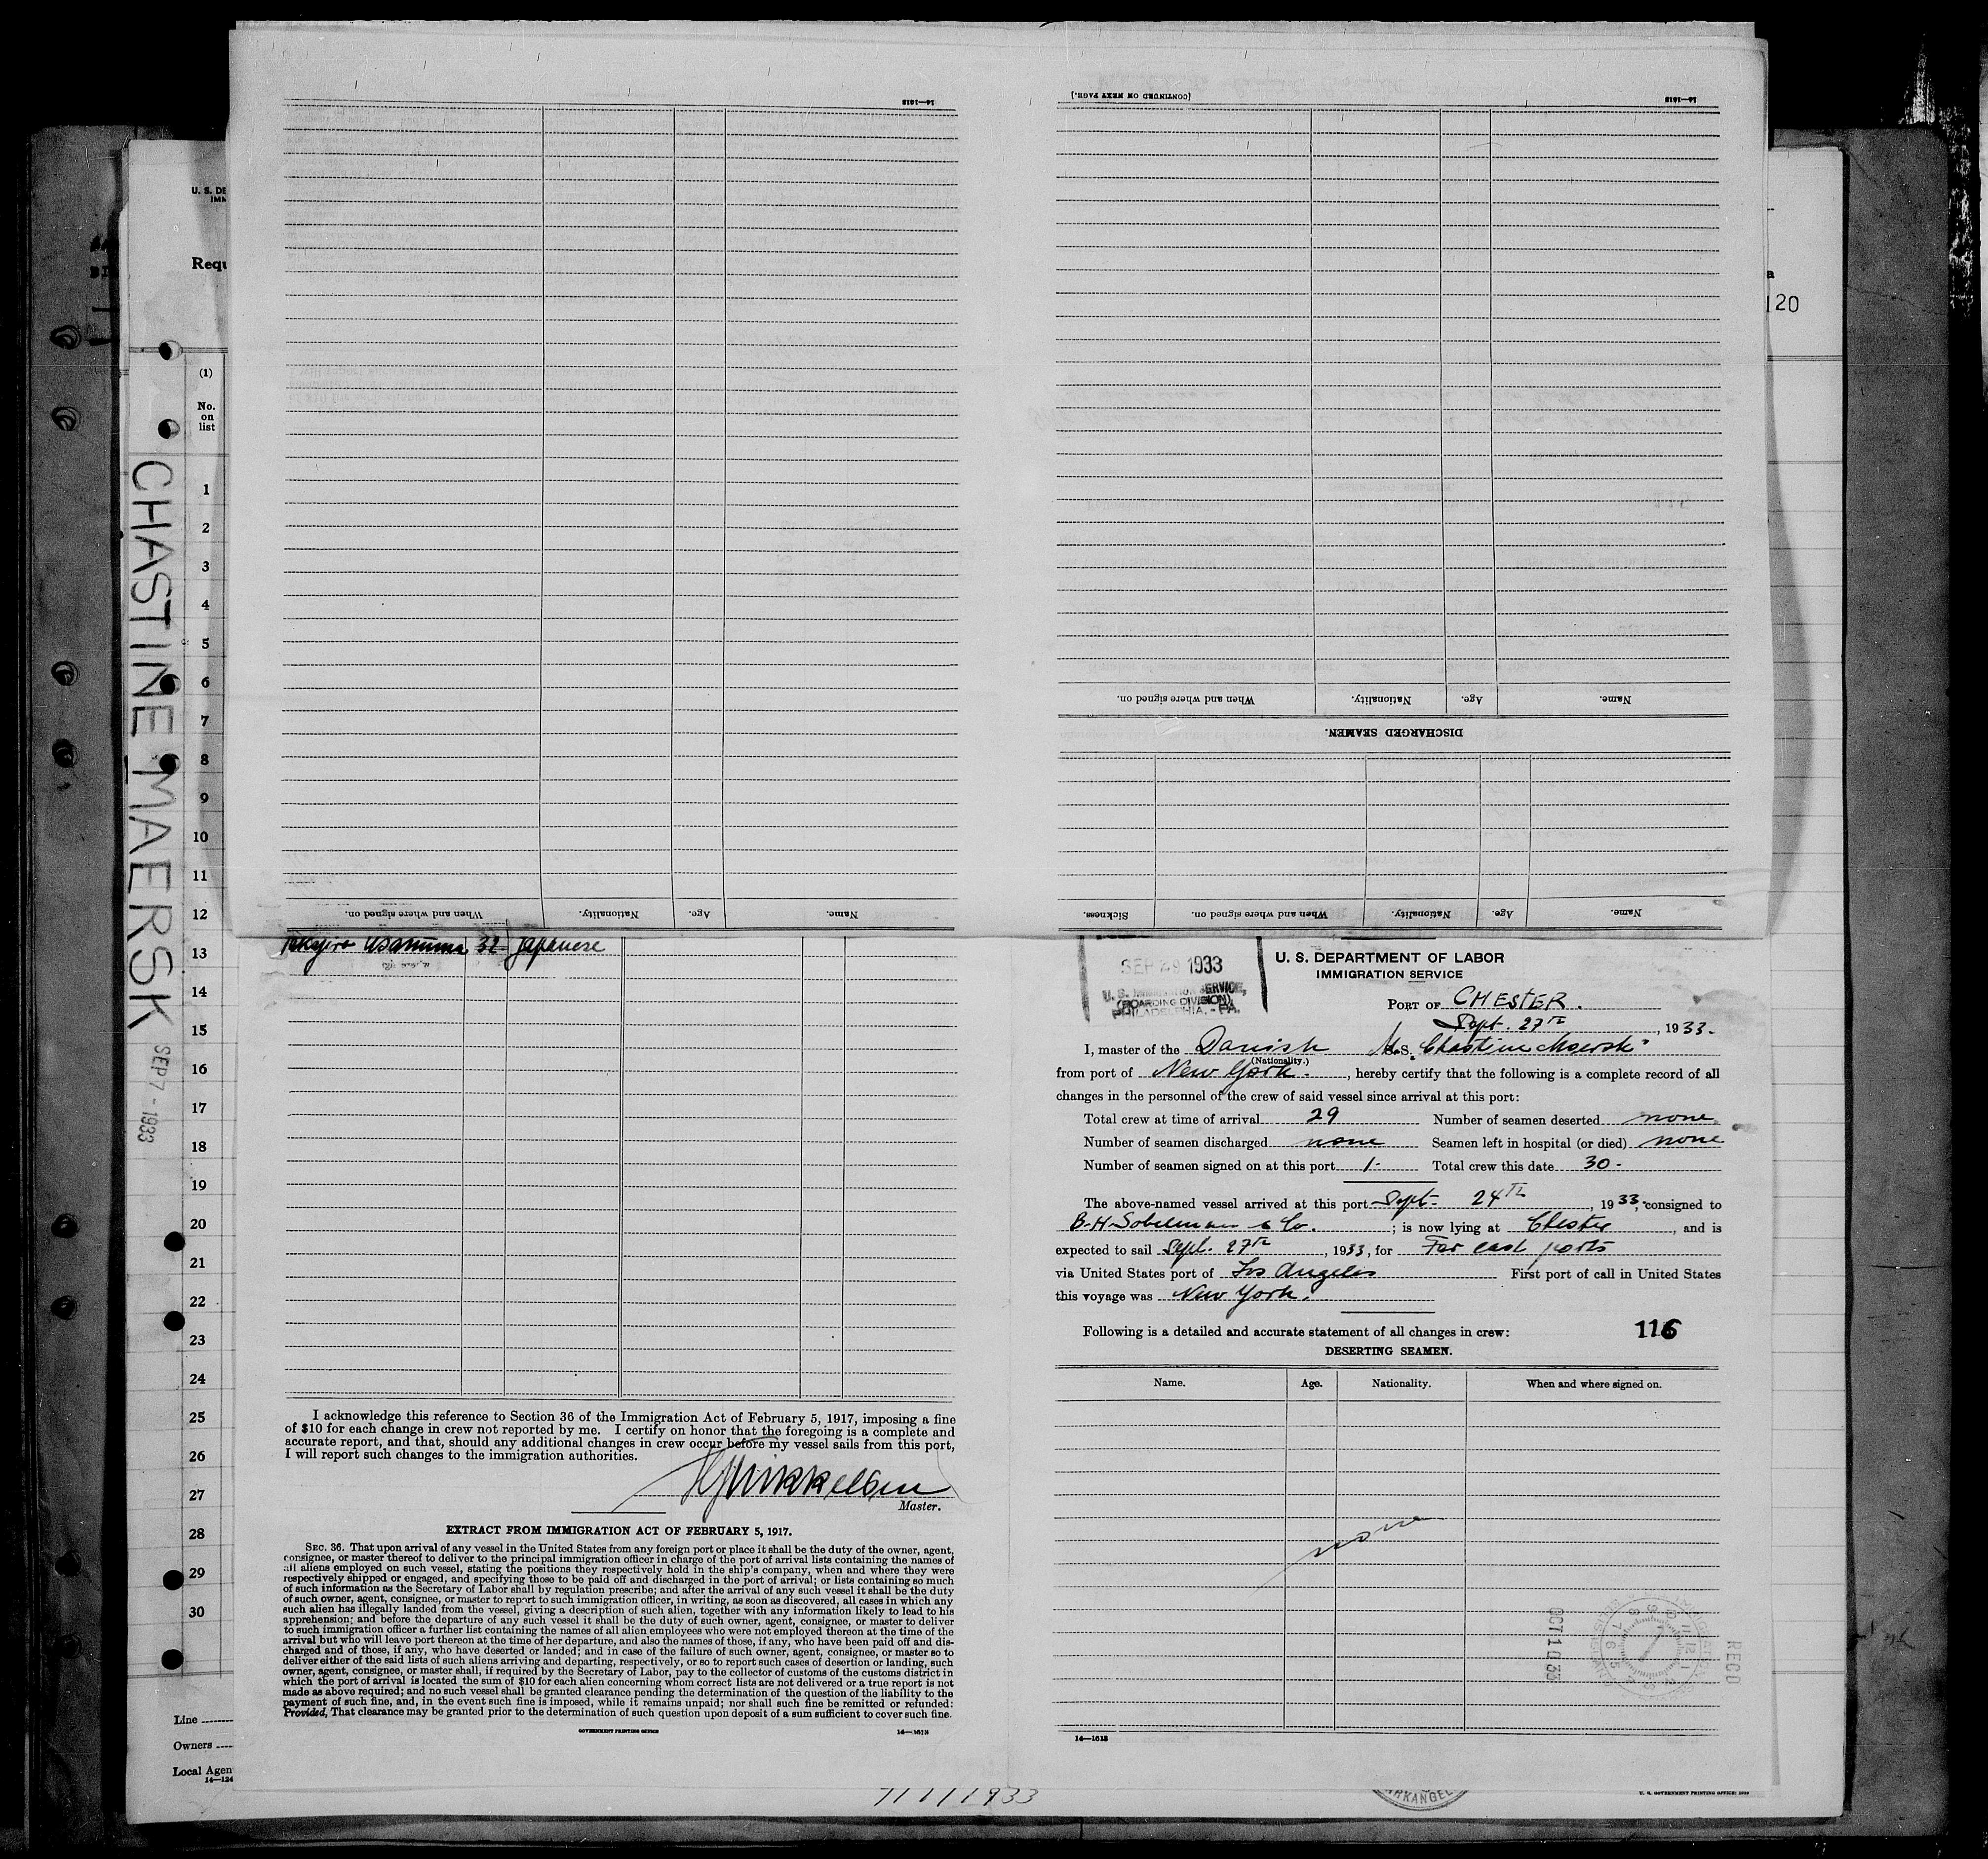 14—1613
[CONTINUED ON NEXT PAGE.]
14—1613
U. S. DE
IMM
Requ
a
120
(1)
No.
on
list
1
2
3
4
5
6
7
8
9
10
11
12
13
14
15
16
17
18
19
20
21
22
23
24
25
26
27
28
29
30
Line
Owners
Local Agen
14—124
CHASTINE MAERSK
SEP 7 - 1933
When and where signed on. Nationality. Age. Name.
When and where signed on. Nationality. Age. Name.
DISCHARGED SEAMEN.
Sickness. When and where signed on. Nationality. Age. Name.
Usanuma 32 Japanese
I acknowledge this reference to Section 36 of the Immigration Act of February 5, 1917, imposing a fine
of $10 for each change in crew not reported by me. I certify on honor that the foregoing is a complete and
accurate report, and that, should any additional changes in crew occur before my vessel sails from this port,
I will report such changes to the immigration authorities.
Mikkelsen
Master.
EXTRACT FROM IMMIGRATION ACT OF FEBRUARY 5, 1917.
SEC. 36. That upon arrival of any vessel in the United States from any foreign port or place it shall be the duty of the owner, agent,
consignee, or master thereof to deliver to the principal immigration officer in charge of the port of arrival lists containing the names of
all aliens employed on such vessel, stating the positions they respectively hold in the ship's company, when and where they were
respectively shipped or engaged, and specifying those to be paid off and discharged in the port of arrival; or lists containing so much
of such information as the Secretary of Labor shall by regulation prescribe; and after the arrival of any such vessel it shall be the duty
of such owner, agent, consignee, or master to report to such immigration officer, in writing, as soon as discovered, all cases in which any
such alien has illegally landed from the vessel, giving a description of such alien, together with any information likely to lead to his
apprehension; and before the departure of any such vessel it shall be the duty of such owner, agent, consignee, or master to deliver
to such immigration officer a further list containing the names of all alien employees who were not employed thereon at the time of the
arrival but who will leave port thereon at the time of her departure, and also the names of those, if any, who have been paid off and dis-
charged and of those, if any, who have deserted or landed; and in case of the failure of such owner, agent, consignee, or master so to
deliver either of the said lists of such aliens arriving and departing, respectively, or so to report such cases of desertion or landing, such
owner, agent, consignee, or master shall, if required by the Secretary of Labor, pay to the collector of customs of the customs district in
which the port of arrival is located the sum of $10 for each alien concerning whom correct lists are not delivered or a true report is not
made as above required; and no such vessel shall be granted clearance pending the determination of the question of the liability to the
payment of such fine, and, in the event such fine is imposed, while it remains unpaid; nor shall such fine be remitted or refunded:
Provided, That clearance may be granted prior to the determination of such question upon deposit of a sum sufficient to cover such fine.
GOVERNMENT PRINTING OFFICE 14—1613
SEP 29 1933
U. S. IMMIGRATION SERVICE,
(BOARDING DIVISION)
PHILADELPHIA, - PA.
U. S. DEPARTMENT OF LABOR
IMMIGRATION SERVICE
PORT OF CHESTER.
Sept. 27th, 1933.
I, master of the Danish M.S. Chastine Maersk"
(Nationality.)
from port of New York., hereby certify that the following is a complete record of all
changes in the personnel of the crew of said vessel since arrival at this port:
Total crew at time of arrival 29 Number of seamen deserted none.
Number of seamen discharged none Seamen left in hospital (or died) none
Number of seamen signed on at this port 1- Total crew this date 30-
The above-named vessel arrived at this port Sept. 24th, 1933, consigned to
B-H-Sobelman & Co.; is now lying at Chester, and is
expected to sail Sept. 27th, 1933, for Far east ports
via United States port of Los Angeles First port of call in United States
this voyage was New York.
Following is a detailed and accurate statement of all changes in crew: 116
DESERTING SEAMEN.
Name. Age. Nationality. When and where signed on.
none
OCT 10 33
REC'D
14—1613
7/11/1933
ARKANGEL
U. S. GOVERNMENT PRINTING OFFICE: 1930